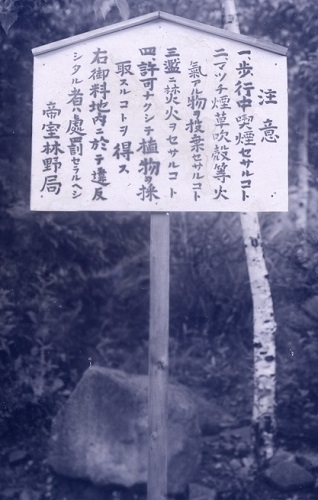 注意
一歩行中喫煙セサルコト
二マツチ煙草吹殻等火
氣アル物ヲ投棄セサルコト
三濫ニ焚火ヲセサルコト
四許可ナクシテ植物ヲ採
取スルコトヲ得ス
右御料地内ニ於テ違反
シタル者ハ處罰セラルヘシ
帝室林野局